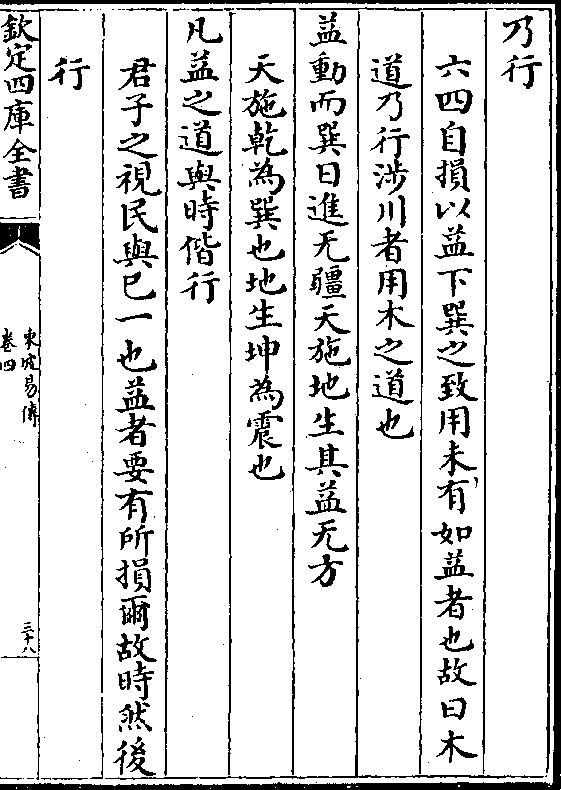 乃行
六四自損以益下巽之致用未有如益者也故曰木
道乃行涉川者用木之道也
益動而巽日進无疆天施地生其益无方
天施乾為巽也地生坤為震也
凡益之道與時偕行
君子之視民與已一也益者要有所損爾故時然後
行
欽定四庫全書
東坡易傳
卷四
三十八